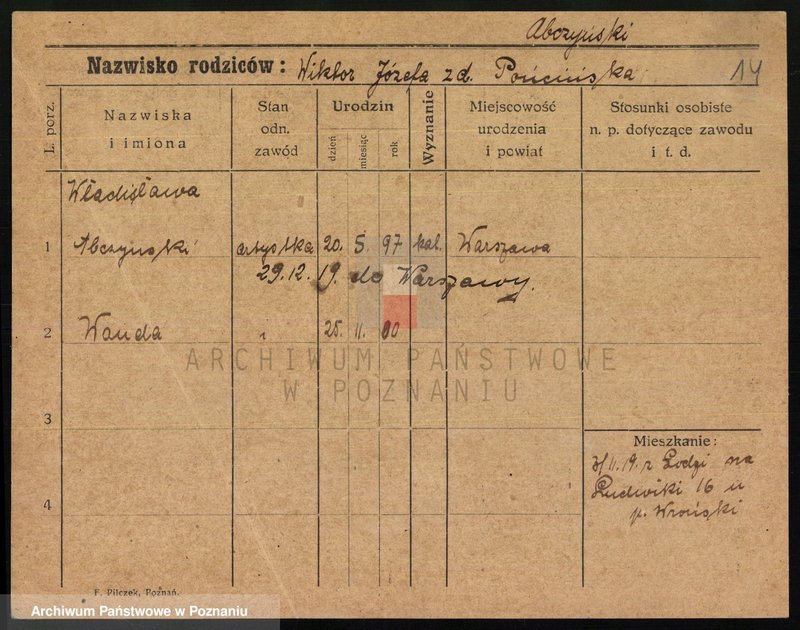 Abczyński
Nazwisko rodziców: Wiktor Józefa zd. 14
L. porz.
Nazwiska
i imiona
Stan
odn.
zawód
Urodzin
dzień
miesiąc
rok
Wyznanie
Miejscowość
urodzenia
i powiat
Stosunki osobiste
n. p. dotyczące zawodu
i t. d.
Władisława
1 Abczyński artystka 20. 5. 97 kat. Warszawa
29.12.19. do Warszawy.
2 Wanda 25. 11. 00
ARCHIWUM PAŃSTWOWE
W POZNANIU
3
Mieszkanie:
11.19. z Łodzi na
Ludwiki 16 u
p. Wroński
4
F. Pilczek, Poznań.
Archiwum Państwowe w Poznaniu